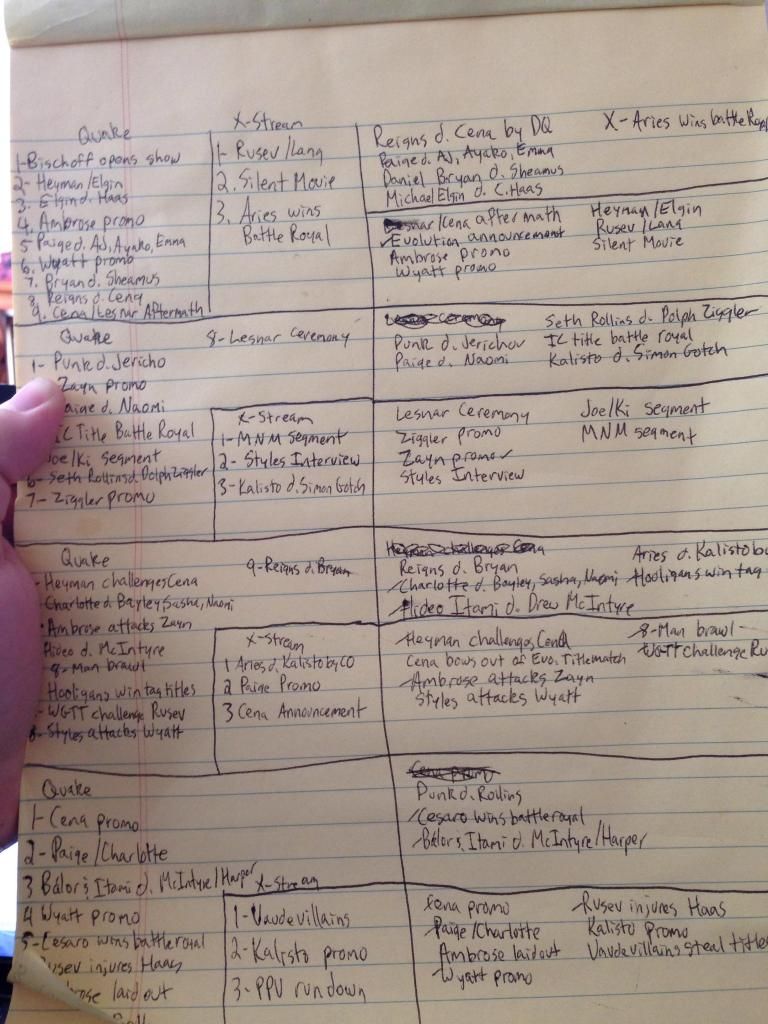 Quake
1-Bischoff opens show
2- Heyman/Elgin
3. Elgin d. Haas
4. Ambrose promo
5 Paige d. AJ, Ayako, Emma
6. Wyatt promo
7. Bryan d. Sheamus
8. Reigns d. Cena
9. Cena/Lesnar Aftermath
X-Stream
1- Rusev/Lana
2. Silent Movie
3. Aries wins
Battle Royal
Reigns d. Cena by DQ
Paige d. AJ, Ayako, Emma
Daniel Bryan d. Sheamus
Michael Elgin d. C. Haas
X-Aries wins battle Royal
Lesnar/Cena aftermath
Evolution announcement
Ambrose promo
Wyatt promo
Heyman/Elgin
Rusev/Lana
Silent Movie
Quake
8-Lesnar Ceremony
1- Punk d. Jericho
Zayn promo
Paige d. Naomi
IC Title Battle Royal
Joe/Ki segment
6- Seth Rollins d. Dolph Ziggler
7- Ziggler promo
X-Stream
1-MNM segment
2- Styles Interview
3-Kalisto d. Simon Gotch
Lesnar Ceremony
Punk d. Jericho
Paige d. Naomi
Seth Rollins d. Dolph Ziggler
IC title battle royal
Kalisto d. Simon Gotch
Lesnar Ceremony
Ziggler promo
Zayn promo
Styles Interview
Joe/Ki segment
MNM segment
Quake
9-Reigns d. Bryan
- Heyman challenges Cena
-Charlotte d. Bayley, Sasha, Naomi
Ambrose attacks Zayn
Hideo d. McIntyre
8-Man brawl
Hooligans win tag titles
- WGTT challenge Rusev
8- Styles attacks Wyatt
X-Stream
1 Aries d. Kalisto by CO
2 Paige Promo
3 Cena Announcement
Heyman challenges Cena
Reigns d. Bryan
Charlotte d. Bayley, Sasha, Naomi
Hideo Itami d. Drew McIntyre
Aries d. Kalisto by
Hooligans win tag
Heyman challenges Cena
Cena bows out of Evo. Title match
Ambrose attacks Zayn
Styles attacks Wyatt
8-Man brawl
WGTT challenge Ru
Quake
1- Cena promo
2- Paige/Charlotte
3 Balor & Itami d. McIntyre/Harper
4 Wyatt promo
5-Cesaro wins battle royal
Rusev injures Haas
laid out
X-Stream
1-Vaudevillains
2-Kalisto promo
3-PPV run down
Cena promo
Punk d. Rollins
Cesaro wins battle royal
Balor & Itami d. McIntyre/Harper
Cena promo
Paige/Charlotte
Ambrose laid out
Wyatt promo
Rusev injures Haas
Kalisto Promo
Vaudevillains steal titles